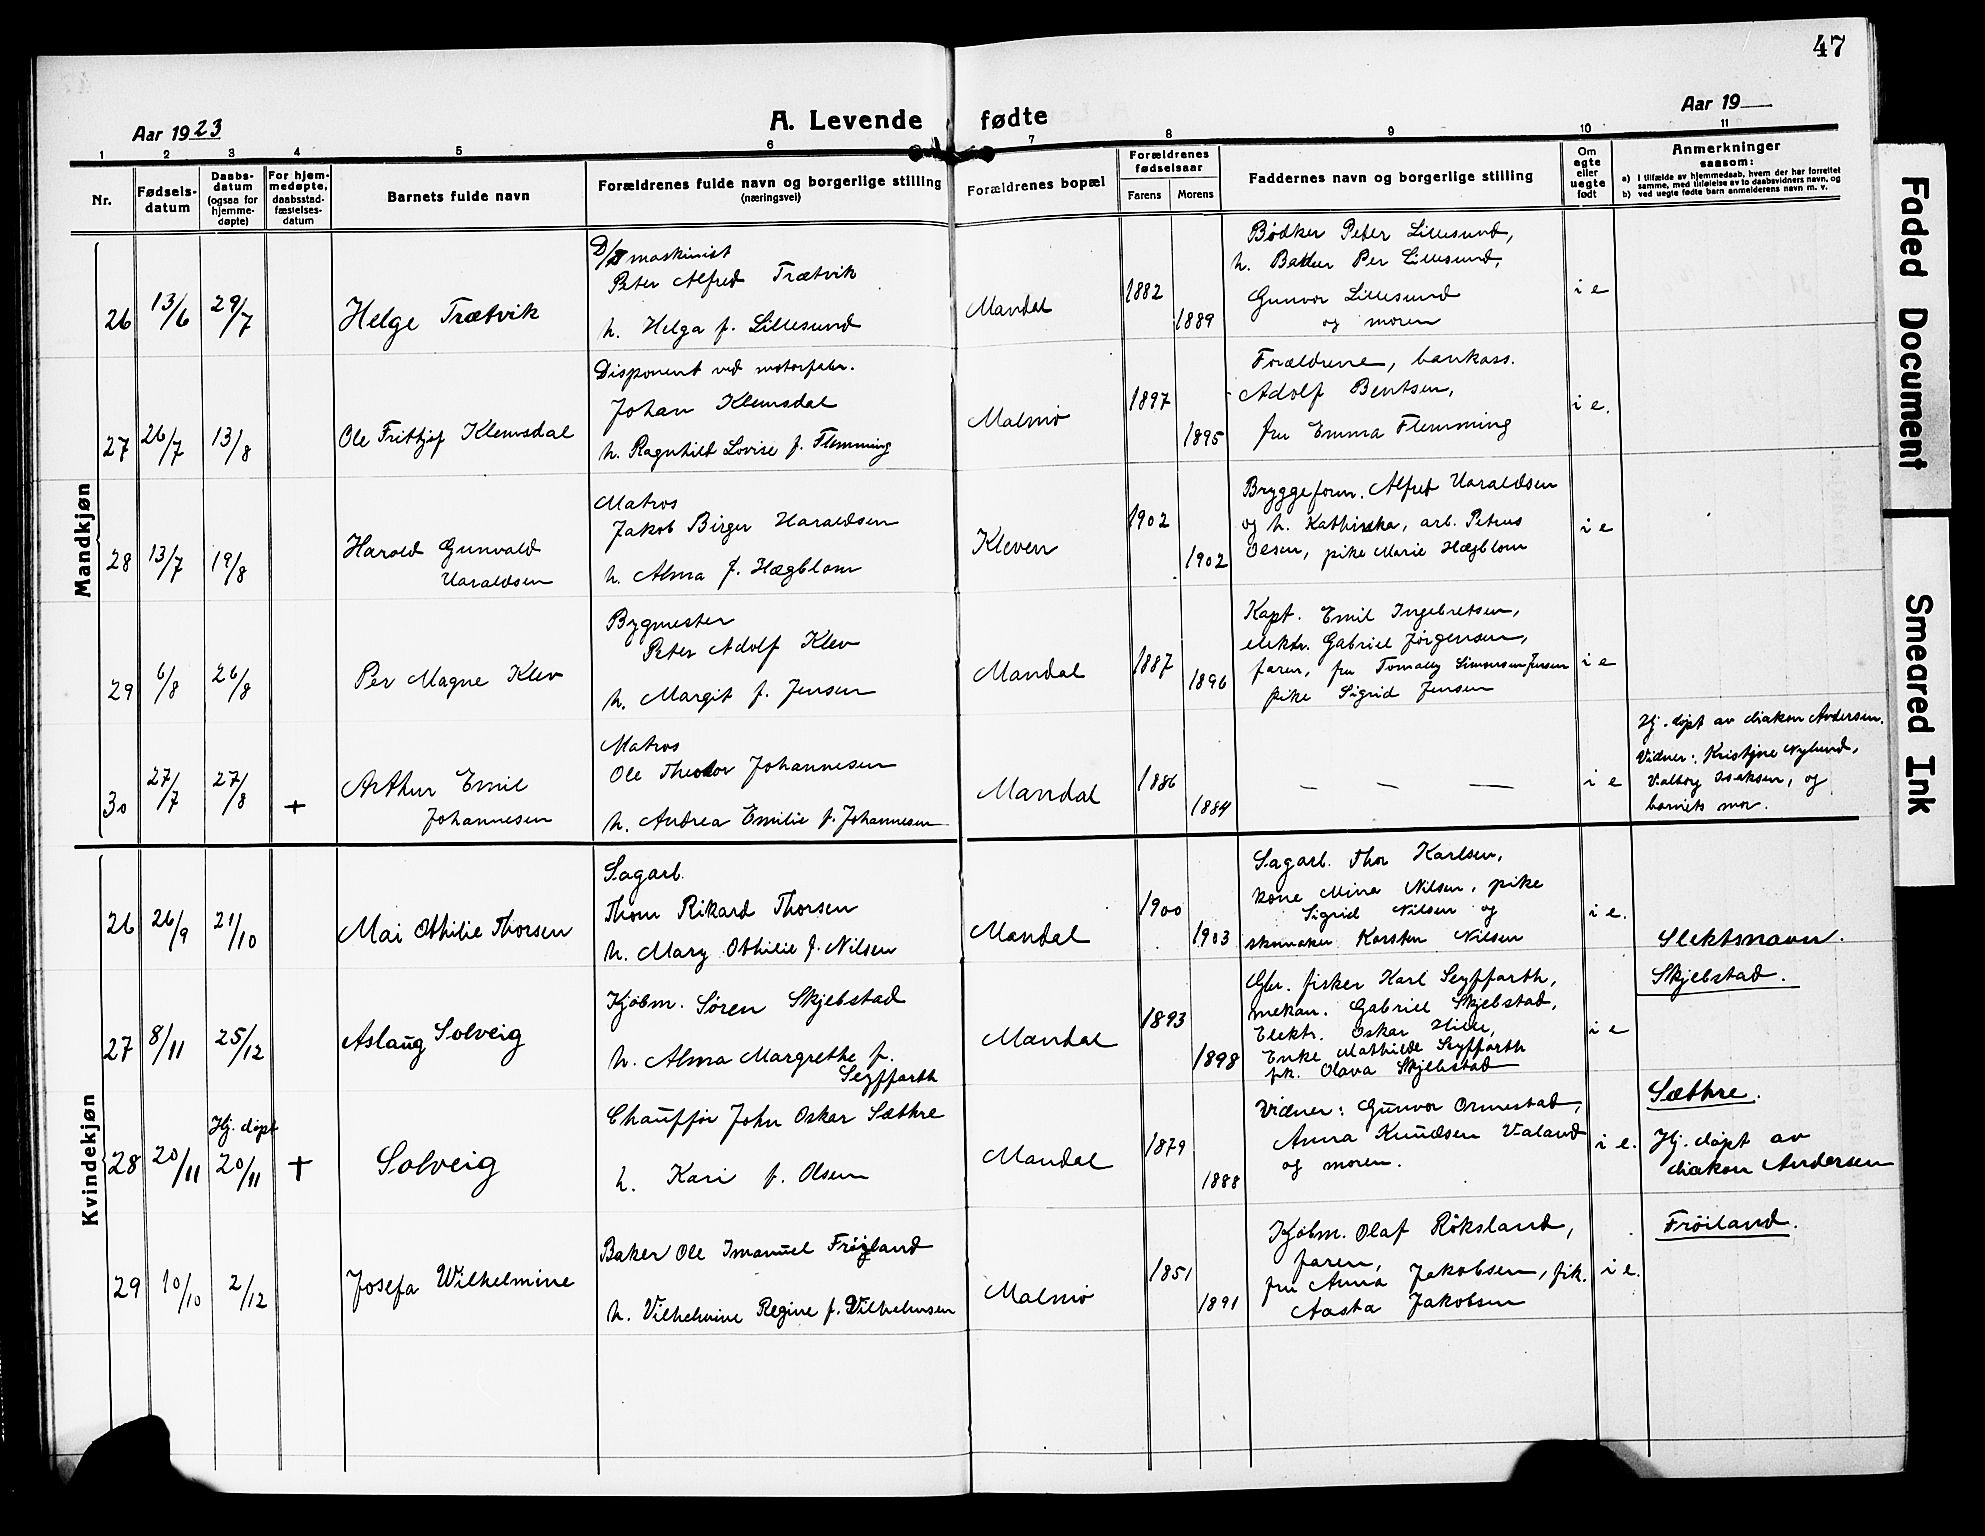 47
Aar 1923
A. Levende fødte
Aar 19
1 2 3 4 5 6 7 8 9 10 11
Nr.
Fødsels-
datum
Daabs-
datum
(ogsaa for
hjemme-
døpte)
For hjem-
medøpte,
daabsstad-
fæstelses-
datum
Barnets fulde navn
Forældrenes fulde navn og borgerlige stilling
(næringsvei)
Forældrenes bopæl
Forældrenes
fødselsaar
Farens Morens
Faddernes navn og borgerlige stilling
Om
egte
eller
uegte
født
Anmerkninger
saasom:
a) I tilfælde av hjemmedaab, hvem der har forrettet
samme, med tilføielse av to daabsvidners navn, og
b) ved uegte fødte barn anmelderens navn m. v.
Mandkjøn
26 13/6 29/7
Helge Trætvik
D/S maskinist
Peter Alfred Trætvik
h. Helga f. Lillesund
Mandal
1882
1889
Bødker Peter Lillesund,
h. Baker Per Lillesund,
Gunvor Lillesund
og moren
i e
27 26/7 13/8
Ole Frithjof Klemsdal
Disponent ved motorfabr.
Johan Klemsdal
h. Ragnhild Lovise f. Flemming
Malmø
1897
1895
Forældrene, bankass.
Adolf Bentsen,
fru Emma Flemming
i e.
28 13/7 19/8
Harald Gunvald
Haraldsen
Matros
Jakob Birger Haraldsen
h. Alma f. Hægblom
Kleven
1902
1902
Bryggeform. Alfred Haraldsen
og h. Kathinka, arb. Petrus
Olsen, pike Marie Hægblom
i e
29 6/8 26/8
Per Magne Klev
Bygmester
Peter Adolf Klev
h. Margit f. Jensen
Mandal
1887
1896
Kapt. Emil Ingebretsen,
elektr. Gabriel Jørgensen,
faren, fru Tomally Simonsen Jensen
pike Sigrid Jensen
i e
30 27/7 27/8 +
Arthur Emil
Johannesen
Matros
Ole Theodor Johannesen
h. Andrea Emilie f. Johannesen
Mandal
1886
1884
— — —
i e
Hj. døpt av diakon Andersen.
Vidner: Kristine Nylund,
Valborg Isaksen, og
barnets mor.
Kvindekjøn
26 26/9 21/10
Mai Othilie Thorsen
Sagarb.
Thom Rikard Thorsen
h. Mary Othilie f. Nilsen
Mandal
1900
1903
Sagarb. Thor Karlsen,
kone Mina Nilsen, pike
Sigrid Nilsen og
skomaker Karsten Nilsen
i e.
Slektsnavn.
27 8/11 25/12
Aslaug Solveig
Kjøbm. Søren Skjebstad
h. Alma Margrethe f.
Seyffarth
Mandal
1893
1898
Gbr. fisker Karl Seyffarth,
mekan. Gabriel Skjebstad,
Elektr. Oskar Hille,
Enke Mathilde Seyffarth
pk. Olava Skjebstad
i e
Skjebstad.
28 20/11 Hj. døpt 20/11 +
Solveig
Chauffør John Oskar Sæthre
h. Kari f. Olsen
Mandal
1879
1888
Vidner: Gunvor Ormestad,
Anna Knudsen Valand
og moren.
i e.
Sæthre.
Hj. døpt av
diakon Andersen
29 10/10 2/12
Josefa Wilhelmine
Baker Ole Imanuel Frøiland
h. Vilhelmine Regine f. Vilhelmsen
Malmø
1851
1891
Kjøbm. Olaf Røksland,
faren,
fru Anna Jakobsen, pik.
Aasta Jakobsen
i e.
Frøiland.
Faded Document
Smeared Ink